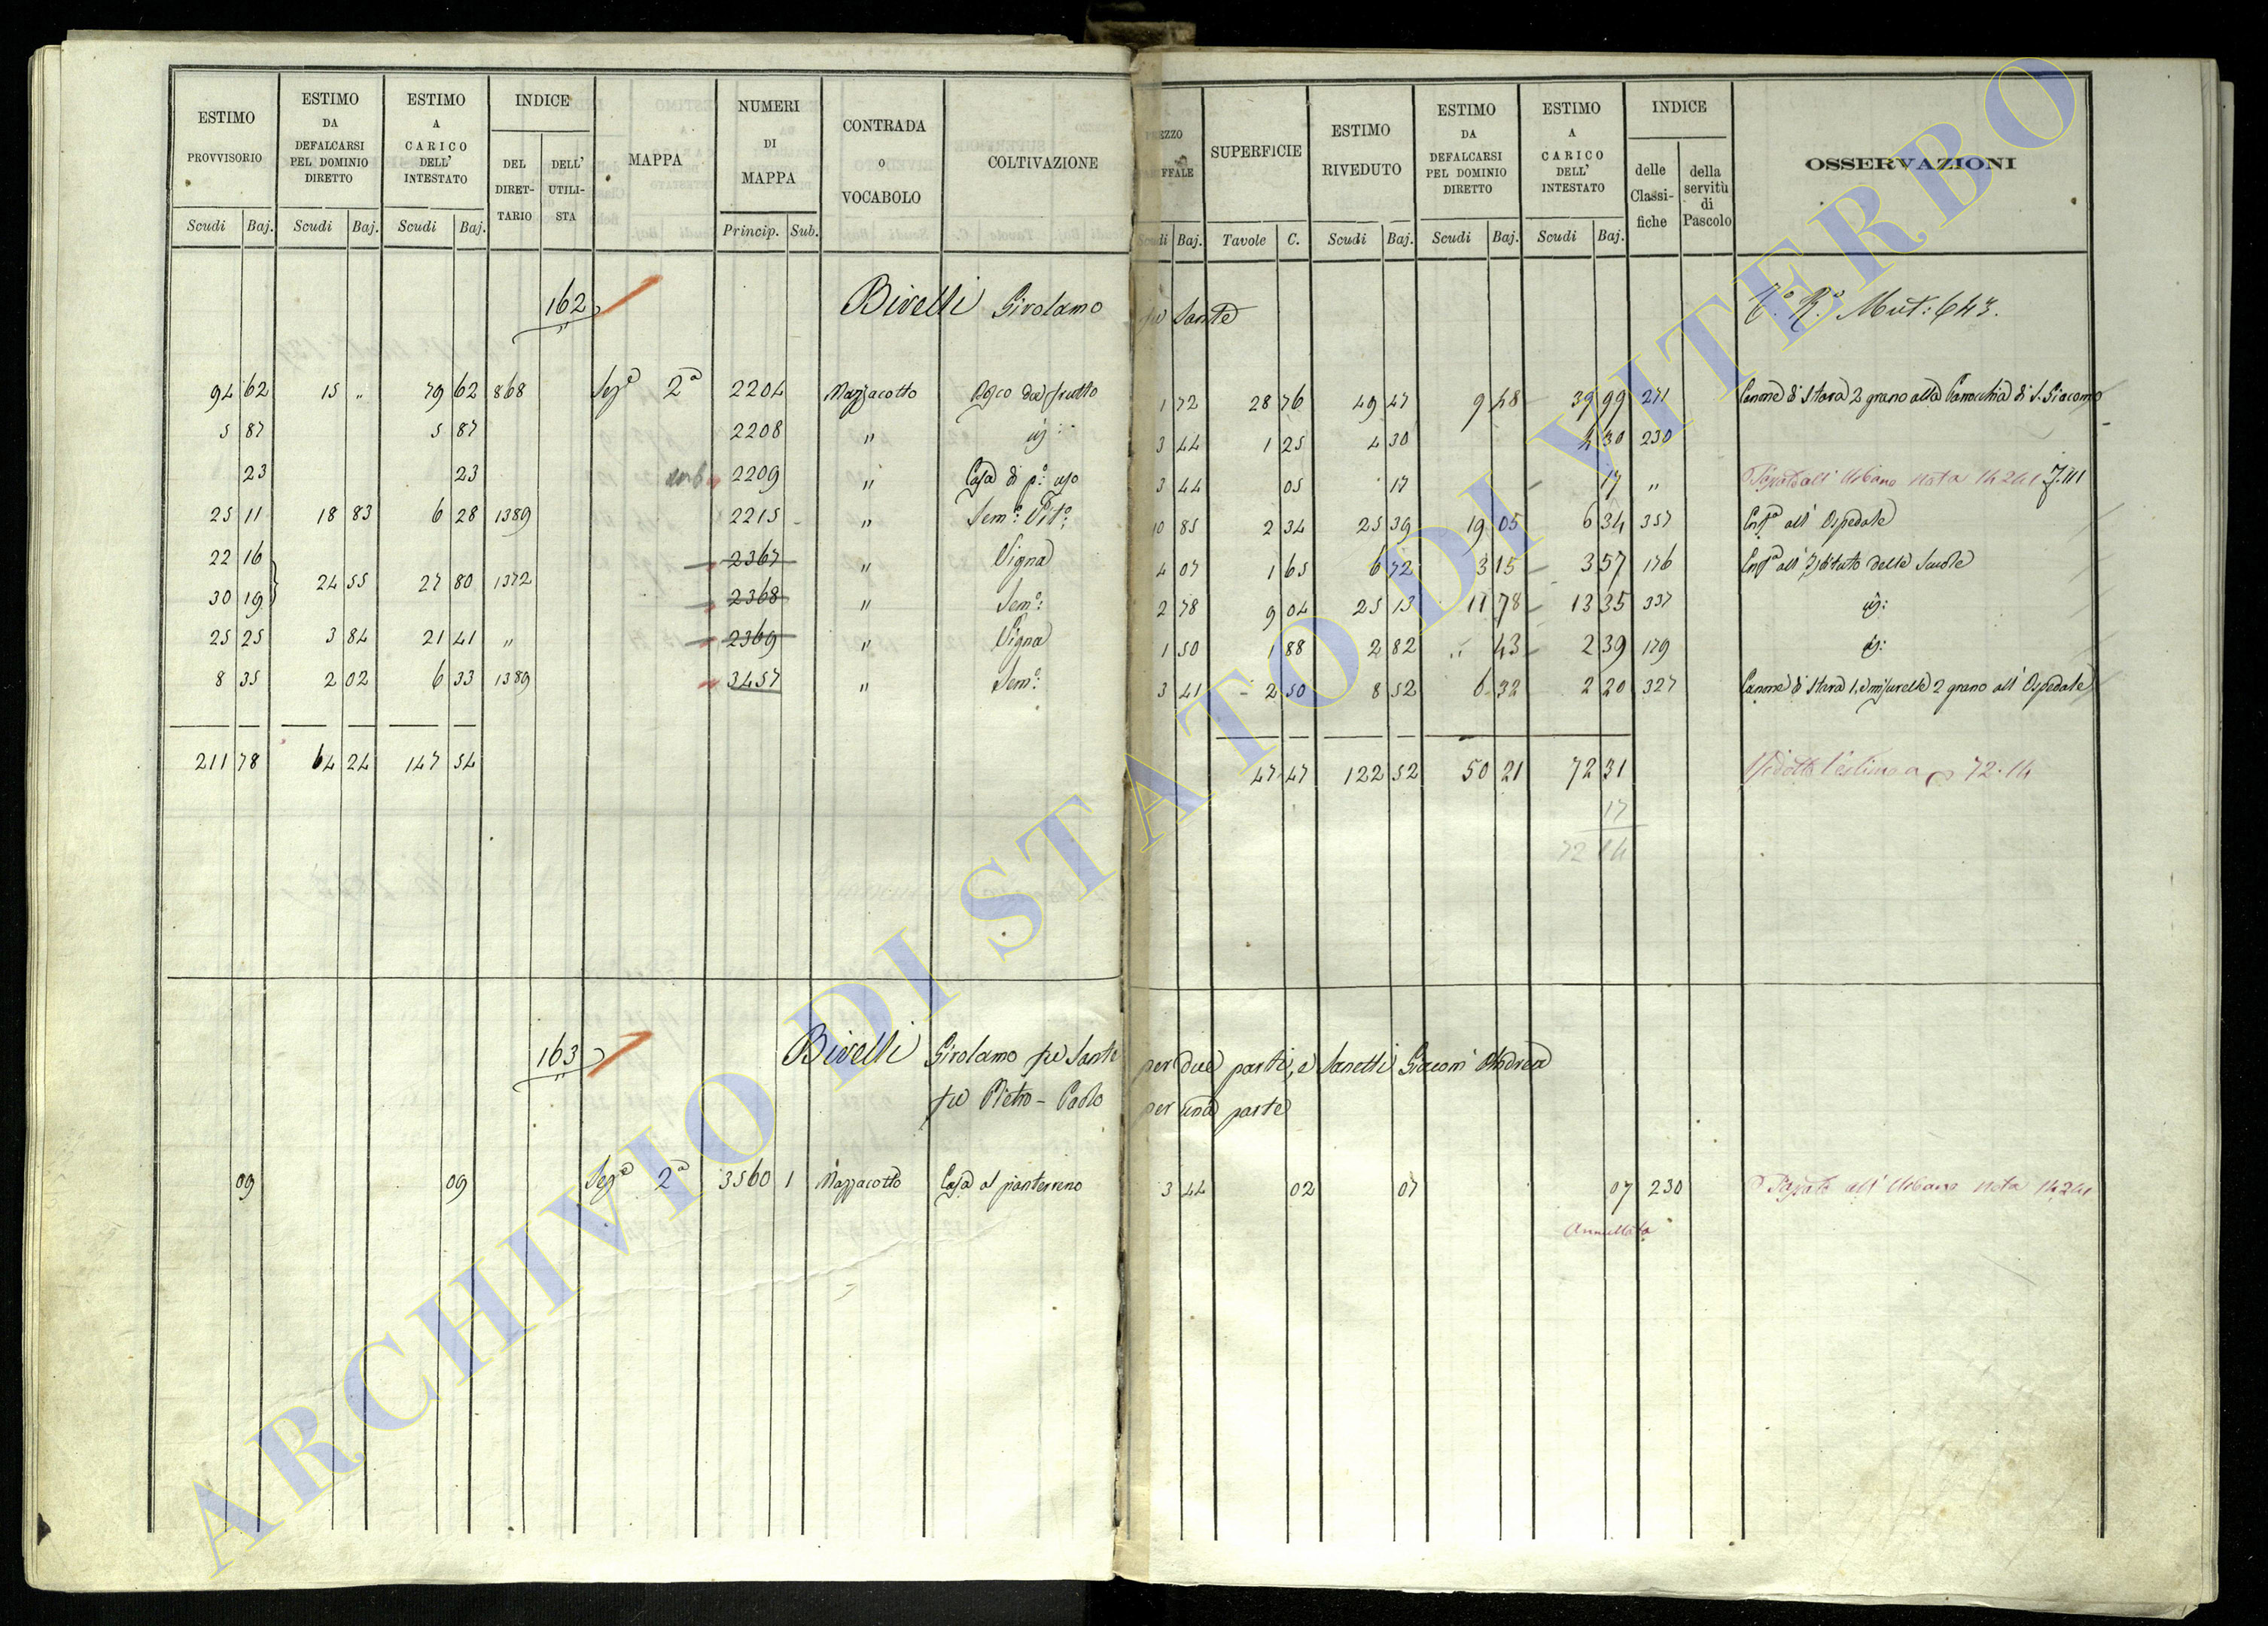 ESTIMO PROVVISORIO Scudi Baj. | ESTIMO DA DEFALCARSI PEL DOMINIO DIRETTO Scudi Baj. | ESTIMO A CARICO DELL' INTESTATO Scudi Baj. | INDICE DEL DIRETTARIO | DELL' UTILISTA | MAPPA | NUMERI DI MAPPA Princip. Sub. | CONTRADA O VOCABOLO | COLTIVAZIONE | SUPERFICIE Tavole C. | ESTIMO RIVEDUTO Scudi Baj. | ESTIMO DA DEFALCARSI PEL DOMINIO DIRETTO Scudi Baj. | ESTIMO A CARICO DELL' INTESTATO Scudi Baj. | INDICE delle Classifiche | della servitù di Pascolo | OSSERVAZIONI
162 Bivelli Girolamo fu Sante Mut: 643.
94 62 15 " 79 62 868 Sez.e 2a 2204 Mazzacotto da frutto 1 72 28 76 49 47 9 48 39 99 271 Canone di Stara 2 grano alla Parrocchia di S. Giacomo
5 87 5 87 2208 " 3 44 1 25 4 30 4 30 230
23 23 2209 " Casa di p.o uso 3 44 05 17 17 " all' Urbano Nota
25 11 18 83 6 28 1389 2215 " Sem.o Vit.o 10 85 2 34 25 39 19 05 6 34 357 all' Ospedale
22 16 2367 " Vigna 4 07 1 65 6 72 3 15 3 57 176 all' Istituto delle Scuole
30 19 24 55 27 80 1372 2368 " Sem.o 2 78 9 04 25 13 11 78 13 35 337
25 25 3 84 21 41 " 2369 " Vigna 1 50 1 88 2 82 " 43 2 39 179
8 35 2 02 6 33 1389 3457 " Sem.o 3 41 2 50 8 52 6 32 2 20 327 Canone di Stara 1, e misurelle 2 grano all' Ospedale
211 78 64 24 147 54 47 47 122 52 50 21 72 31 l'estimo a 72.14
17
72 14
163 Bivelli Girolamo fu Sante per due parti, e Sanetti Giacom' Andrea
fu Pietro-Paolo per una parte
09 09 Sez.e 2a 3560 1 Mazzacotto Casa al pianterreno 3 44 02 07 07 230 all' Urbano Nota
Annullata
ARCHIVIO DI STATO DI VITERBO